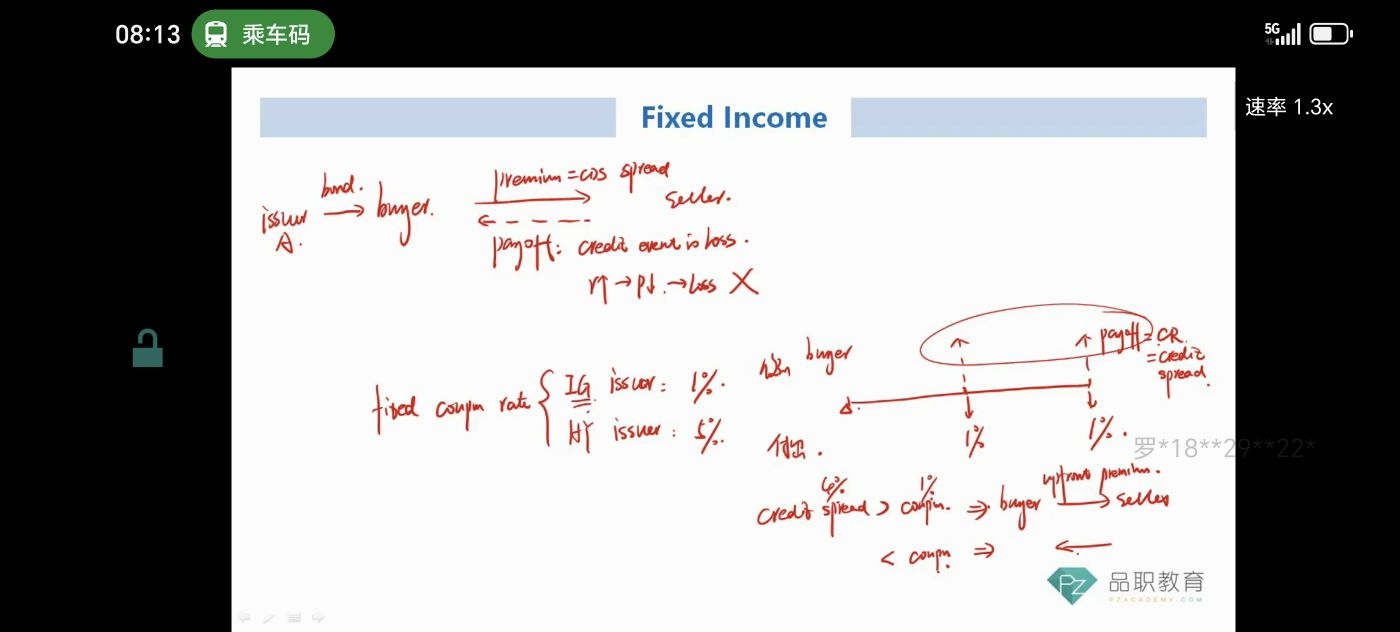 08:13 乘车码 5G
速率 1.3x
Fixed Income
premium = CDS spread
bond.
issuer → buyer. seller.
A.
payoff: credit event is loss.
r↑ → P↓. → loss X
buyer
payoff = CR
= credit
spread.
fixed coupon rate { IG issuer: 1%.
HY issuer: 5%.
1% 1%.
付出.
罗*18**29**22*
6% 1% upfront premium.
credit spread > coupon. ⇒ buyer → seller
< coupon. ⇒ ←
PZ 品职教育
PZACADEMY.COM